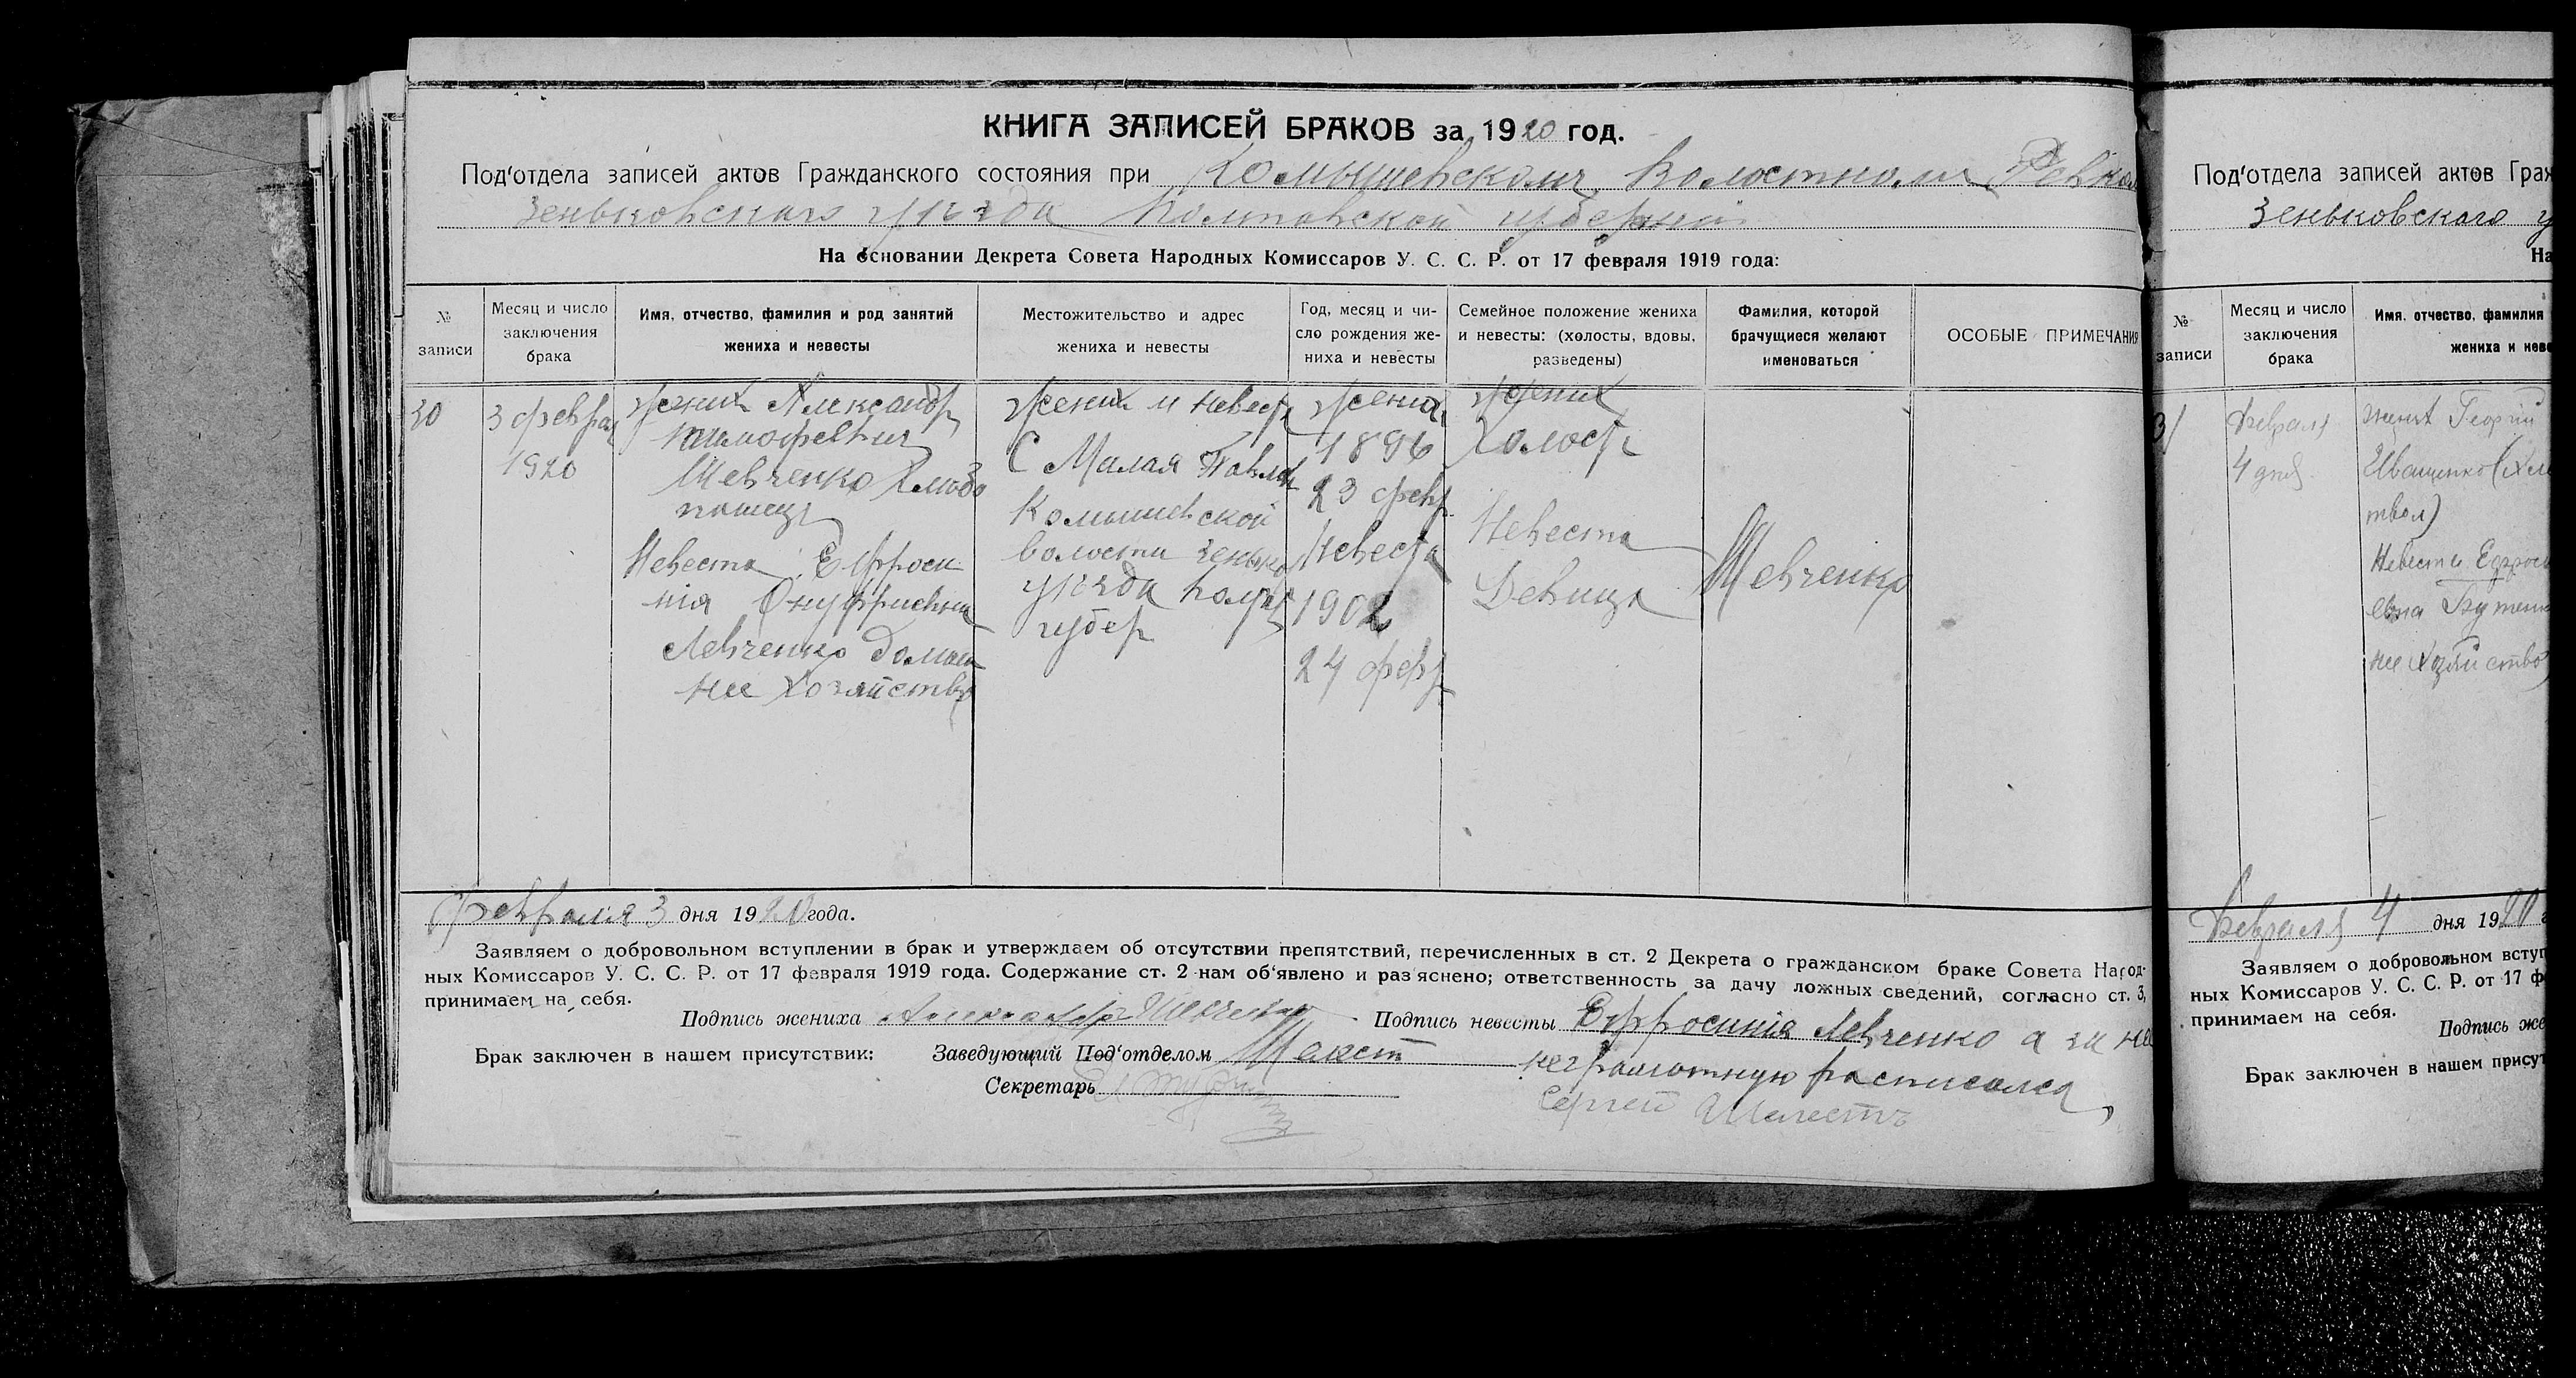 КНИГА ЗАПИСЕЙ БРАКОВ за 1920 год.
Под'отдела записей актов Гражданского состояния при Комышевскомъ Волостном Ревком
Зеньковскаго уѣзда Полтавской губернии
На основании Декрета Совета Народных Комиссаров У. С. С. Р. от 17 февраля 1919 года:
№ записи
Месяц и число заключения брака
Имя, отчество, фамилия и род занятий жениха и невесты
Местожительство и адрес жениха и невесты
Год, месяц и число рождения жениха и невесты
Семейное положение жениха и невесты: (холосты, вдовы, разведены)
Фамилия, которой брачущиеся желают именоваться
ОСОБЫЕ ПРИМЕЧАНИЯ
30
3 феврал
1920
жених Александр
Тимофеевич
Шевченко Хлебо
пашец
Невеста Ефроси
нія Онуфриевна
Левченко домаш
нее хозяйство
жених и невест
С Малая Павлов
Комышевской
волости Зеньков
уѣзда Полт
губер
жених
1896
23 февр
Невеста
1902
24 февр
жених
Холост
Невеста
Девица
Шевченко
Февраля 3 дня 1920 года.
Заявляем о добровольном вступлении в брак и утверждаем об отсутствии препятствий, перечисленных в ст. 2 Декрета о гражданском браке Совета Народ-
ных Комиссаров У. С. С. Р. от 17 февраля 1919 года. Содержание ст. 2 нам об'явлено и раз'яснено; ответственность за дачу ложных сведений, согласно ст. 3,
принимаем на себя.
Подпись жениха Александр Шевченко Подпись невесты Ефросинія Левченко а за не
неграмотную расписался
Сергей Шелестъ
Брак заключен в нашем присутствии: Заведующий Под'отделом
Секретарь
Под'отдела записей актов Граж
Зеньковскаго у
На
№ записи
Месяц и число заключения брака
Имя, отчество, фамилия
жениха и неве
31
Февраля
4 дня
жених Георгий
Иващенко (хле
Невеста Ефрос
евна Бутен
нее хозяйство)
Февраля 4 дня 1920 г
Заявляем о добровольном вступ
ных Комиссаров У. С. С. Р. от 17 ф
принимаем на себя.
Подпись же
Брак заключен в нашем присут